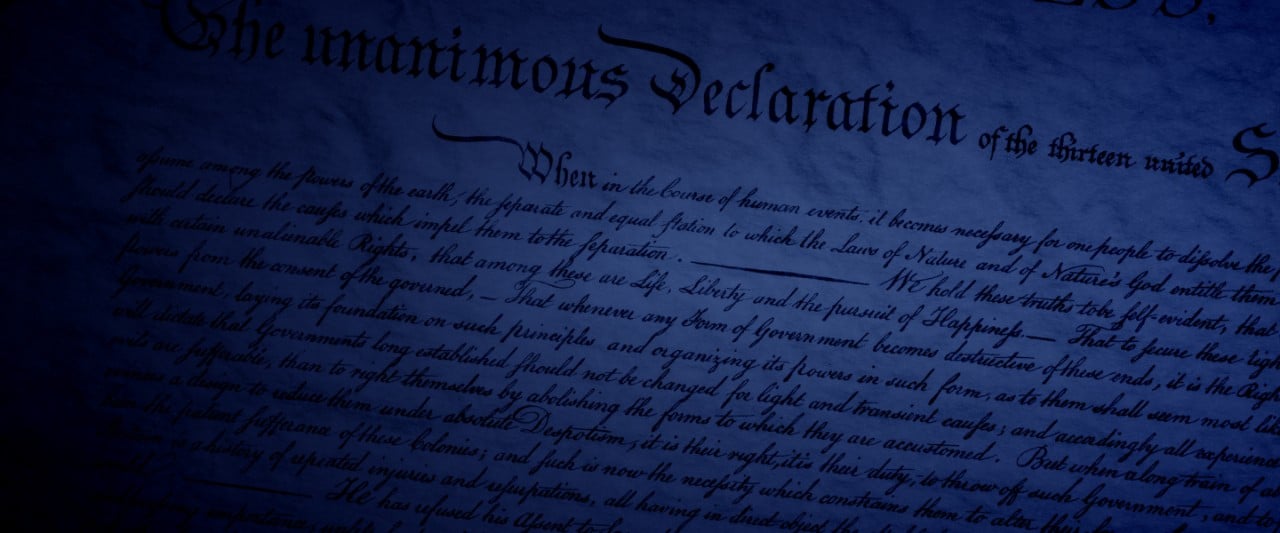 The unanimous Declaration of the thirteen united S
When in the Course of human events, it becomes necessary for one people to dissolve the
assume among the powers of the earth, the separate and equal station to which the Laws of Nature and of Nature's God entitle them
should declare the causes which impel them to the separation. We hold these truths to be self-evident, that
with certain unalienable Rights, that among these are Life, Liberty and the pursuit of Happiness.— That to secure these righ
powers from the consent of the governed, — That whenever any Form of Government becomes destructive of these ends, it is the Righ
Government, laying its foundation on such principles and organizing its powers in such form, as to them shall seem most lik
will dictate that Governments long established should not be changed for light and transient causes; and accordingly all experienc
evils are sufferable, than to right themselves by abolishing the forms to which they are accustomed. But when a long train of a
a design to reduce them under absolute Despotism, it is their right, it is their duty, to throw off such Government, and to
the patient sufferance of these Colonies; and such is now the necessity which constrains them to alter their
a history of repeated injuries and usurpations, all having in direct object the
He has refused his Assent to
importance